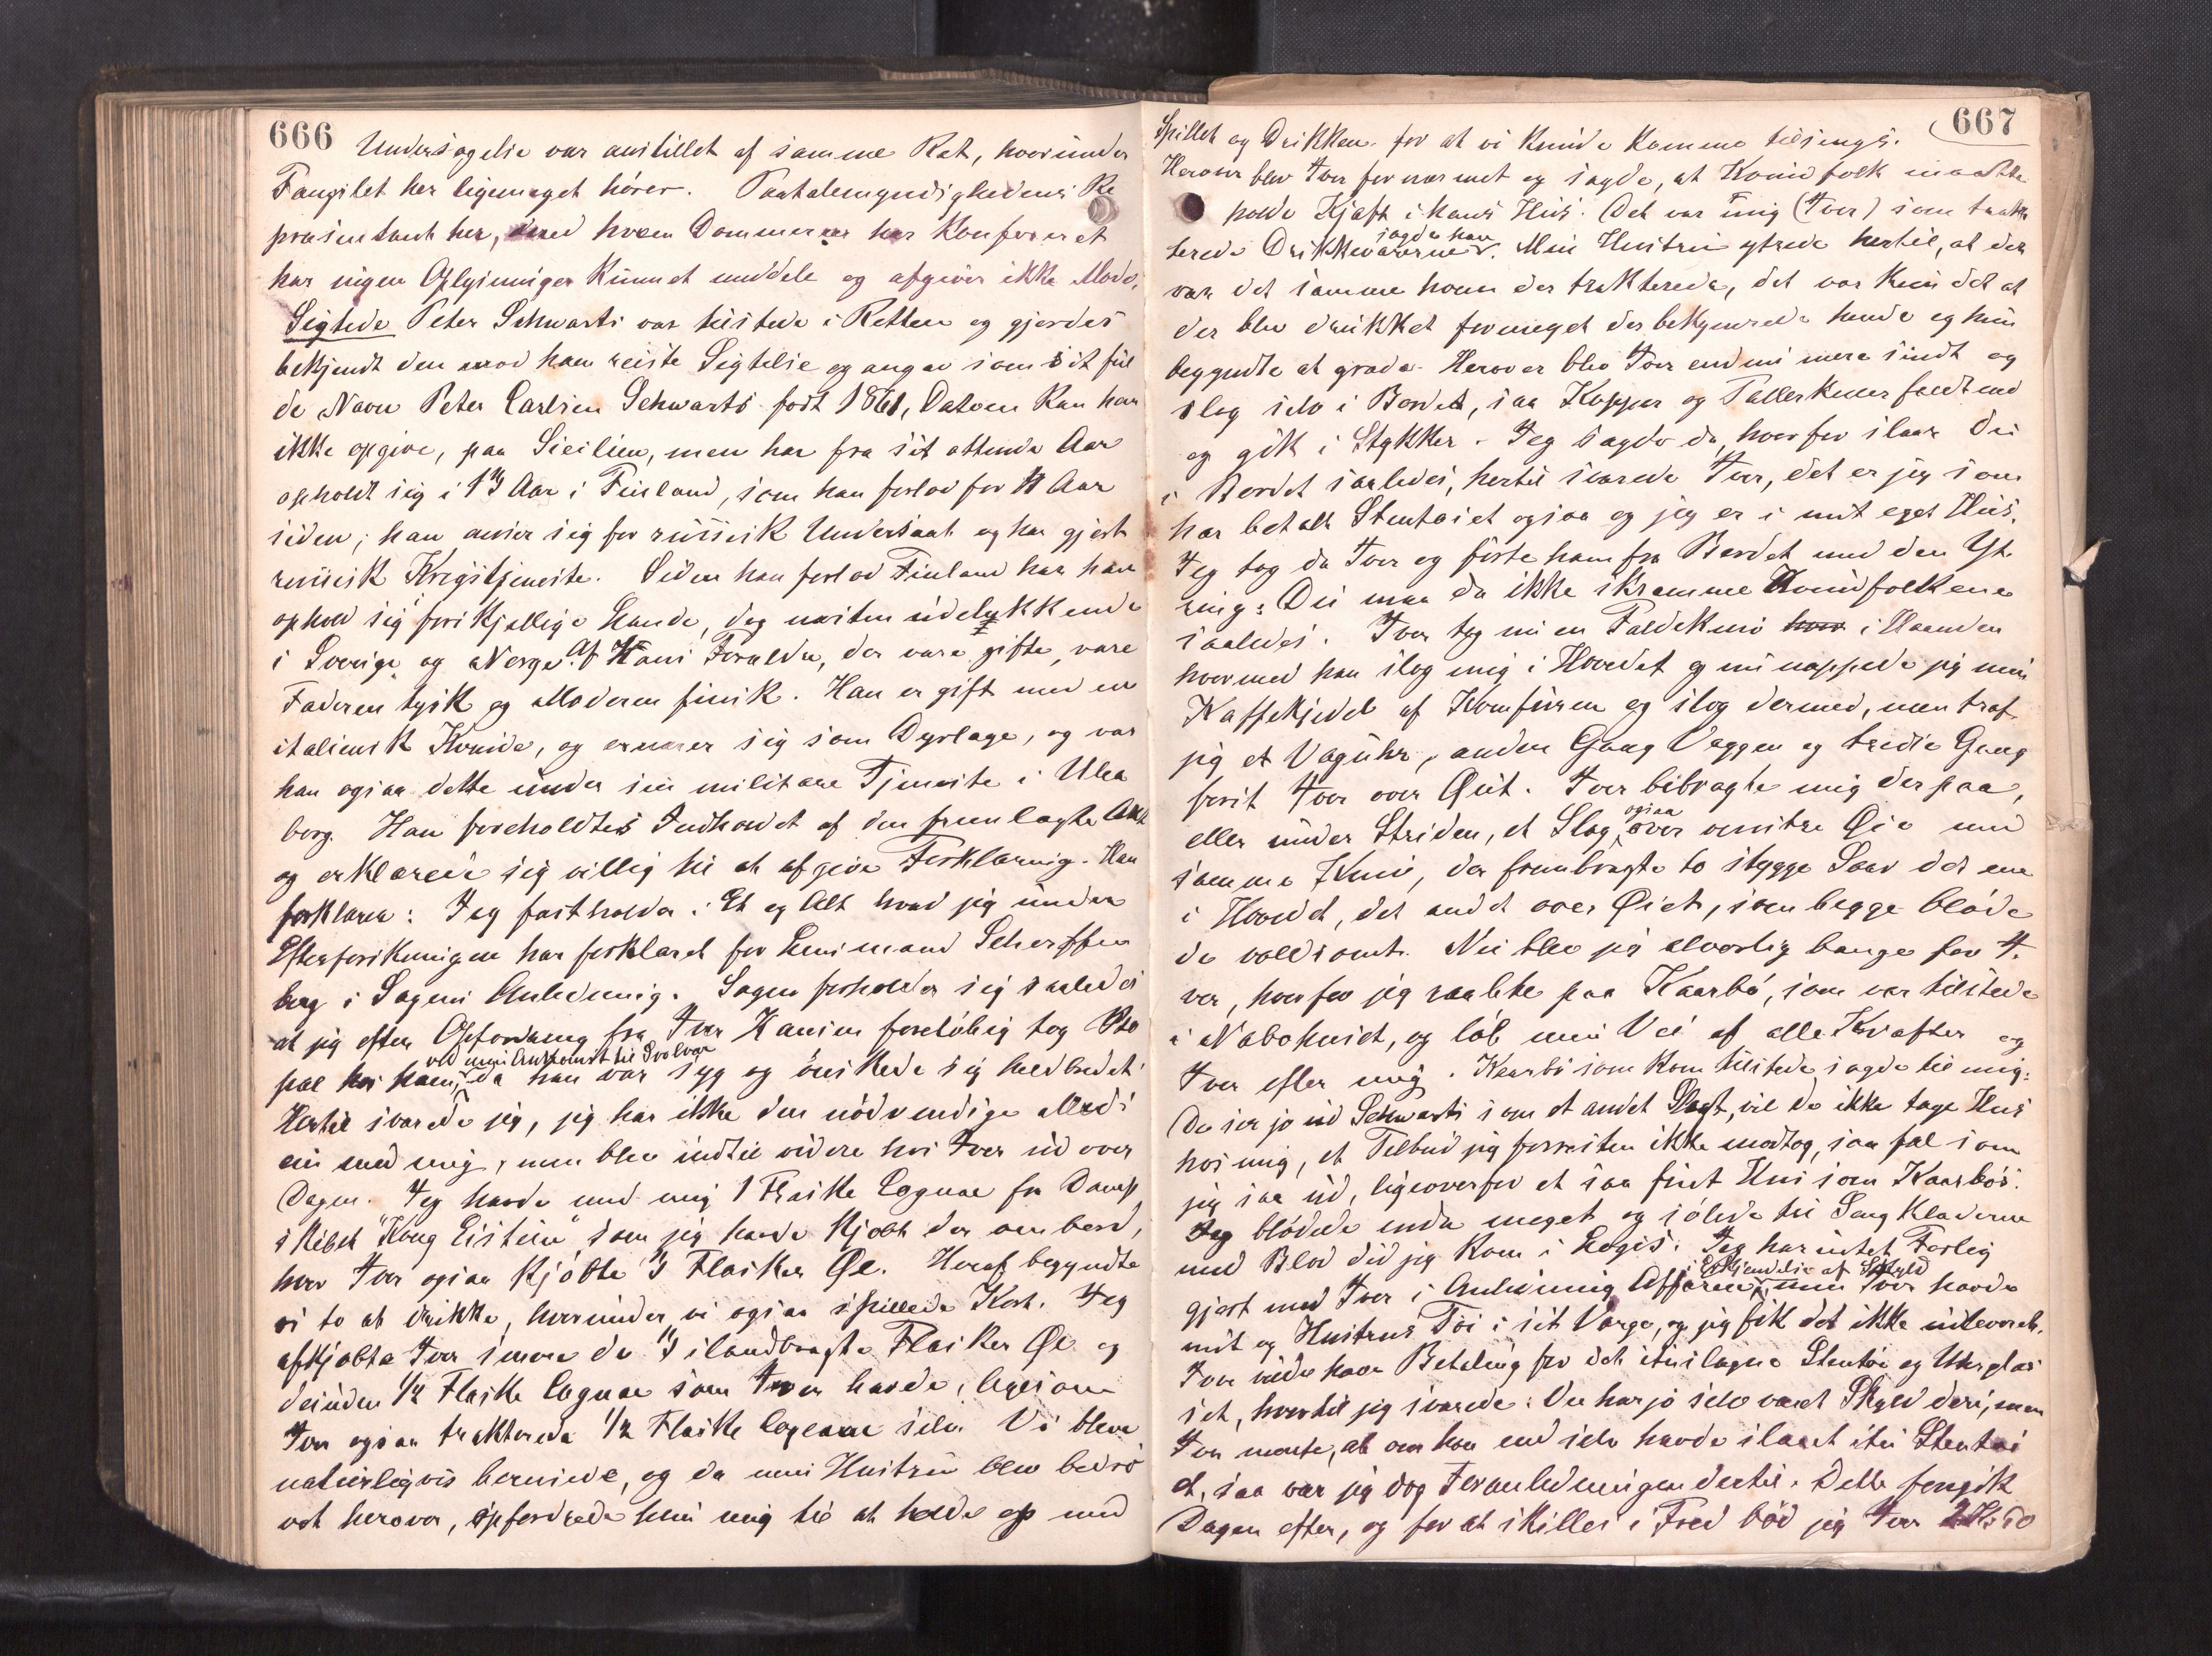 666
Undersøgelse var anstillet af samme Ret, hvorunder
Fængslet her ligemeget hörer. Paatalemyndighedens Re
præsentant her, med hvem Dommeren har konfereret
har ingen Oplysninger kunnet meddele og afgiver ikke Møde.
Sigtede Peter Schwarts var tilstede i Retten og gjordes
bekjendt den mod ham reiste Sigtelse og angav som sit ful
de Navn Peter Carlsen Schwarts født 1861, Datoen kan han
ikke opgive, paa Sicilien, men har fra sit ottende Aar
opholdt sig i 13 Aar i Finland, som han forlod for 11 Aar
siden; han anser sig for russisk Undersaat og har gjort
russisk Krigstjeneste. Siden han forlod Finland har han
ophold sig forskjellige Lande, dog næsten udelukkende
i Sverige og Norge. Af Hans Forældre, der vare gifte, vare
Faderen tysk og Moderen finsk. Han er gift med en
italiensk Kvinde, og ernærer sig som Dyrlæge, og var
han ogsaa dette under sin militære Tjeneste i Ulea
borg. Han foreholdtes Indholdet af den fremlagte Akt
og erklærede sig villig til at afgive Forklaring. Han
forklarer: Jeg fastholder i Et og Alt hvad jeg under
Efterforskningen har forklaret for Lensmand Scherffen
berg i Sagens Anledning. Sagen forholder sig saaledes
at jeg efter Opfordring fra Iver Hansen foreløbig tog Op
ved min Ankomst til Svolvær
hos ham, da han var syg og önskede sig helbredet.
Hertil svarede jeg, jeg har ikke den nödvendige Medi
cin med mig, men blev indtil videre hos Iver ud over
Dagen. Jeg havde med mig 1 Flaske Cognac fra Damp
skibet "Kong Eistein" som jeg havde kjøbt der ombord,
hvor Iver ogsaa kjöbte 3 Flasker Øl. Heraf begyndte
vi to at drikke, hvorunder vi ogsaa spillede Kort. Jeg
afkjøbte Iver senere de 3 ilandbragte Flasker Øl og
desuden 1/2 Flaske Cognac som Iver havde, ligesom
Iver ogsaa trakterede 1/2 Flaske Cognac selv. Vi bleve
naturligvis berusede, og da min Hustru blev bedrø
vet herover, opfordrede hun mig til at holde op med
667
Spillet og Drikken for at vi kunde komme tilsengs.
Herover blev Iver fornærmet og sagde, at Kvindfolk maatte
holde Kjæft i hans Hus. Det var mig (Iver) som trakte
sagde han
terede Drikkevarerne. Min Hustru ytrede hertil, at det
var det samme hvem der trakterede, det var kun det at
der blev drukket formeget der bekymrede hende og hun
begyndte at græde. Herover blev Iver endnu mere sindt og
slog selv i Bordet, saa Kopper og Tallerkener faldt ned
og gik i Stykker. Jeg sagde da, hvorfor slaar Du
i Bordet saaledes, hertil svarede Iver, det er jeg som
har betalt Stentøiet ogsaa og jeg er i mit eget Hus.
Jeg tog da Iver og förte ham fra Bordet med den Yt
ring: Du maa da ikke skræmme Kvindfolkene
saaledes. Iver tog nu en Foldekniv hvor i Haanden
hvormed han slog mig i Hovedet og nu nappede jeg min
Kaffekjedel af Komfuren og slog dermed, men traf
jeg et Væguhr, anden Gang Væggen og tredie Gang
først Iver over Øiet. Iver bibragte mig derpaa,
ogsaa
eller under Striden, et Slag over venstre Øie med
samme Kniv, der frembragte to stygge Saar det ene
i Hovedet, det andet over Øiet, som begge blöde
de voldsomt. Nu blev jeg alvorlig bange for I.
ver, hvorfor jeg raabte paa Kaarbö, som var tilstede
i Nabohuset, og löb min Vei af alle Kræfter og
Iver efter mig. Kaarbö som kom tilstede sagde til mig:
Du ser jo ud Schwarts som et andet Slagt, vil De ikke tage Hus
hos mig, et Tilbud jeg forresten ikke modtog, saa fæl som
jeg saa ud, ligeoverfor et saa fint Hus som Kaarbös.
Jeg blödede enda meget og sölede til Sengklæderne
med Blod did jeg kom i Logis. Jeg har intet Forlig
i Erkjendelse af Skyld
gjort med Iver i Anledning Affæren, men Iver havde
mit og Hustrus Töi i sit Værge, og jeg fik det ikke udleveret.
Iver vilde have Betaling for det ituslagne Stentöi og Uhrglas
set, hvortil jeg svarede: Du har jo selv været Skyld deri, men
Iver mente, at om han end selv havde slaaet itu Stentøi
et, saa var jeg dog Foranledningen dertil. Dette foregik
Dagen efter, og for at skilles i Fred böd jeg Iver 2 Kr 50